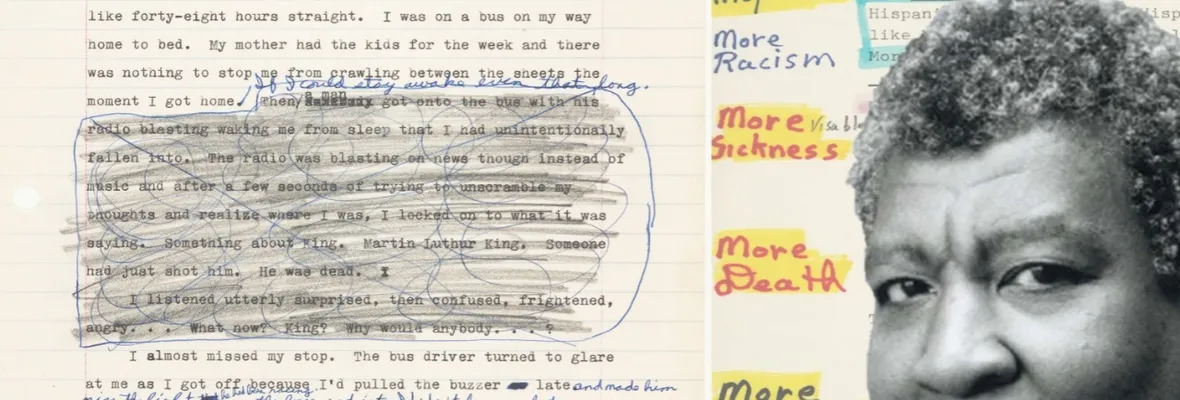 like forty-eight hours straight.  I was on a bus on my way
home to bed.  My mother had the kids for the week and there
was nothing to stop me from crawling between the sheets the
If I could stay awake even that long.
a man
moment I got home.  Then got onto the bus with his
radio blasting waking me from sleep that I had unintentionally
fallen into.  The radio was blasting on news though instead of
music and after a few seconds of trying to unscramble my
thoughts and realize where I was, I locked on to what it was
saying.  Something about King.  Martin Luthur King.  Someone
had just shot him.  He was dead.  I
I listened utterly surprised, then confused, frightened,
angry. . .  What now?  King?  Why would anybody. . . ?
I almost missed my stop.  The bus driver turned to glare
at me as I got off because I'd pulled the buzzer late and made him
Hispani
like
Mor
More
Racism
More Visable
Sickness
More
Death
More